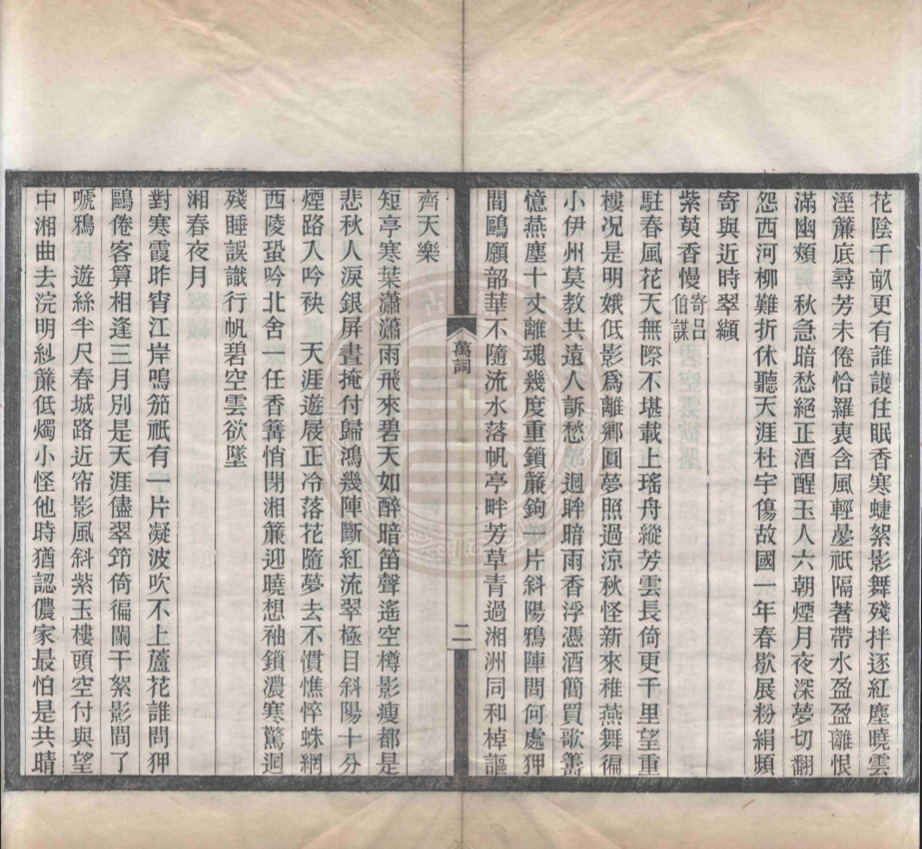 花陰千畝更有誰護住眠香寒蜨絮影舞殘拌逐紅塵曉雲
溼簾底尋芳未倦恰羅衷含風輕㬉祇隔著帶水盈盈離恨
滿幽頰　秋急暗愁絕正酒醒玉人六朝煙月夜深夢切翻
怨西河柳難折休聽天涯杜宇傷故國一年春歇展粉絹頻
寄與近時翠纈
紫萸香慢寄呂伯謀
駐春風花天無際不堪載上瑤舟縱芳雲長倚更千里望重
樓況是明娥低影爲離鄉圓夢照過涼秋怪新來稚燕舞徧
小伊州莫教共遠人訴愁　迴眸暗雨香浮憑酒簡買歌善
憶燕塵十丈離魂幾度重鎖簾鉤片斜陽鴉陣問何處狎
間鷗願韶華不隨流水落帆亭畔芳草靑過湘洲同和棹謳
萬詞
二
齊天樂
短亭寒葉瀟瀟雨飛來碧天如醉暗笛聲遙空樽影瘦都是
悲秋人淚銀屏晝掩付歸鴻幾陣斷紅流翠極目斜陽十分
煙路入吟袂　天涯遊屐正冷落花隨夢去不慣憔悴蛛網
西陵蛩吟北舍一任香篝悄閉湘簾迎曉想袖鎖濃寒驚迴
殘睡誤識行帆碧空雲欲墜
湘春夜月
對寒霞昨宵江岸鳴笳祇有一片凝波吹不上蘆花誰問狎
鷗倦客算相逢三月別是天涯儘翠筇倚徧闌干絮影間了
嗁鴉　遊絲半尺春城路近帘影風斜紫玉樓頭空付與望
中湘曲去浣明紗簾低燭小怪他時猶認儂家最怕是共晴